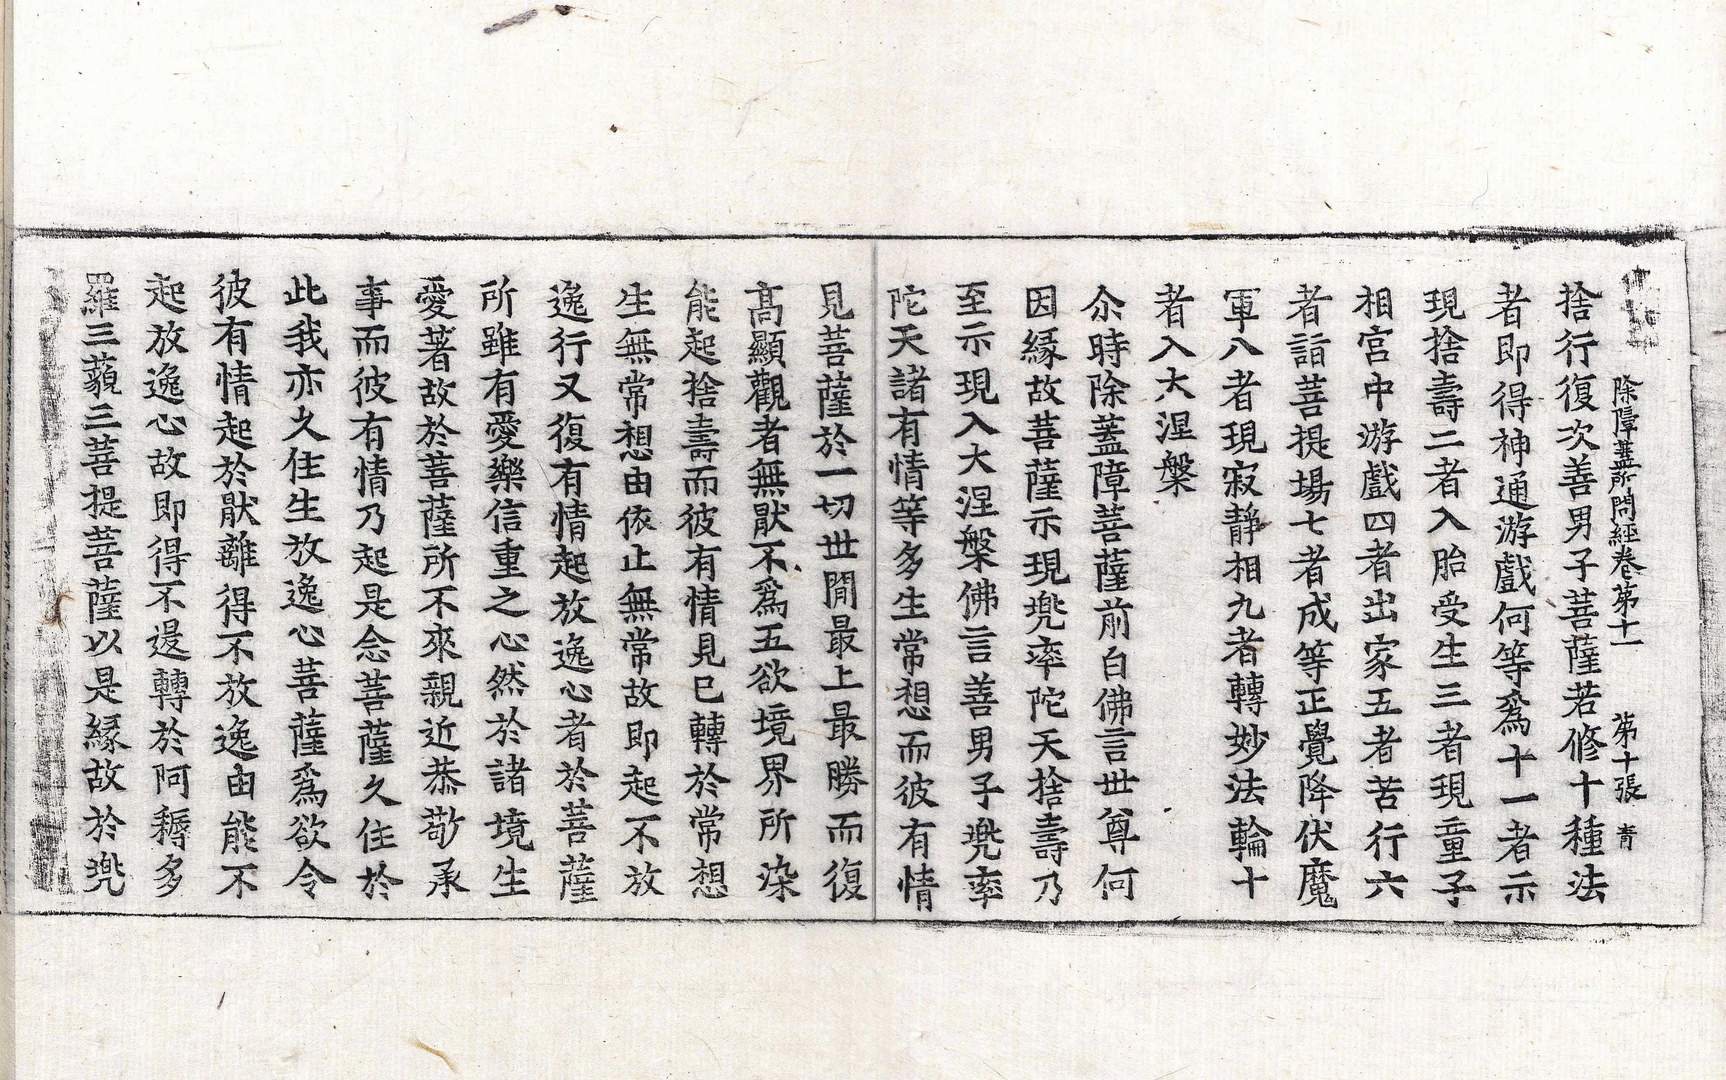 除障蓋所問經卷第十一 第十張 青
捨行復次善男子菩薩若修十種法
者即得神通游戲何等爲十一者示
現捨壽二者入胎受生三者現童子
相宮中游戲四者出家五者苦行六
者詣菩提場七者成等正覺降伏魔
軍八者現寂靜相九者轉妙法輪十
者入大涅槃
尒時除蓋障菩薩前白佛言世尊何
因緣故菩薩示現兠率陀天捨壽乃
至示現入大涅槃佛言善男子兠率
陀天諸有情等多生常想而彼有情
見菩薩於一切世閒最上最勝而復
高顯觀者無猒不爲五欲境界所染
能起捨壽而彼有情見已轉於常想
生無常想由依止無常故即起不放
逸行又復有情起放逸心者於菩薩
所雖有愛樂信重之心然於諸境生
愛著故於菩薩所不來親近恭敬承
事而彼有情乃起是念菩薩久住於
此我亦久住生放逸心菩薩爲欲令
彼有情起於猒離得不放逸由能不
起放逸心故即得不退轉於阿耨多
羅三藐三菩提菩薩以是緣故於兠